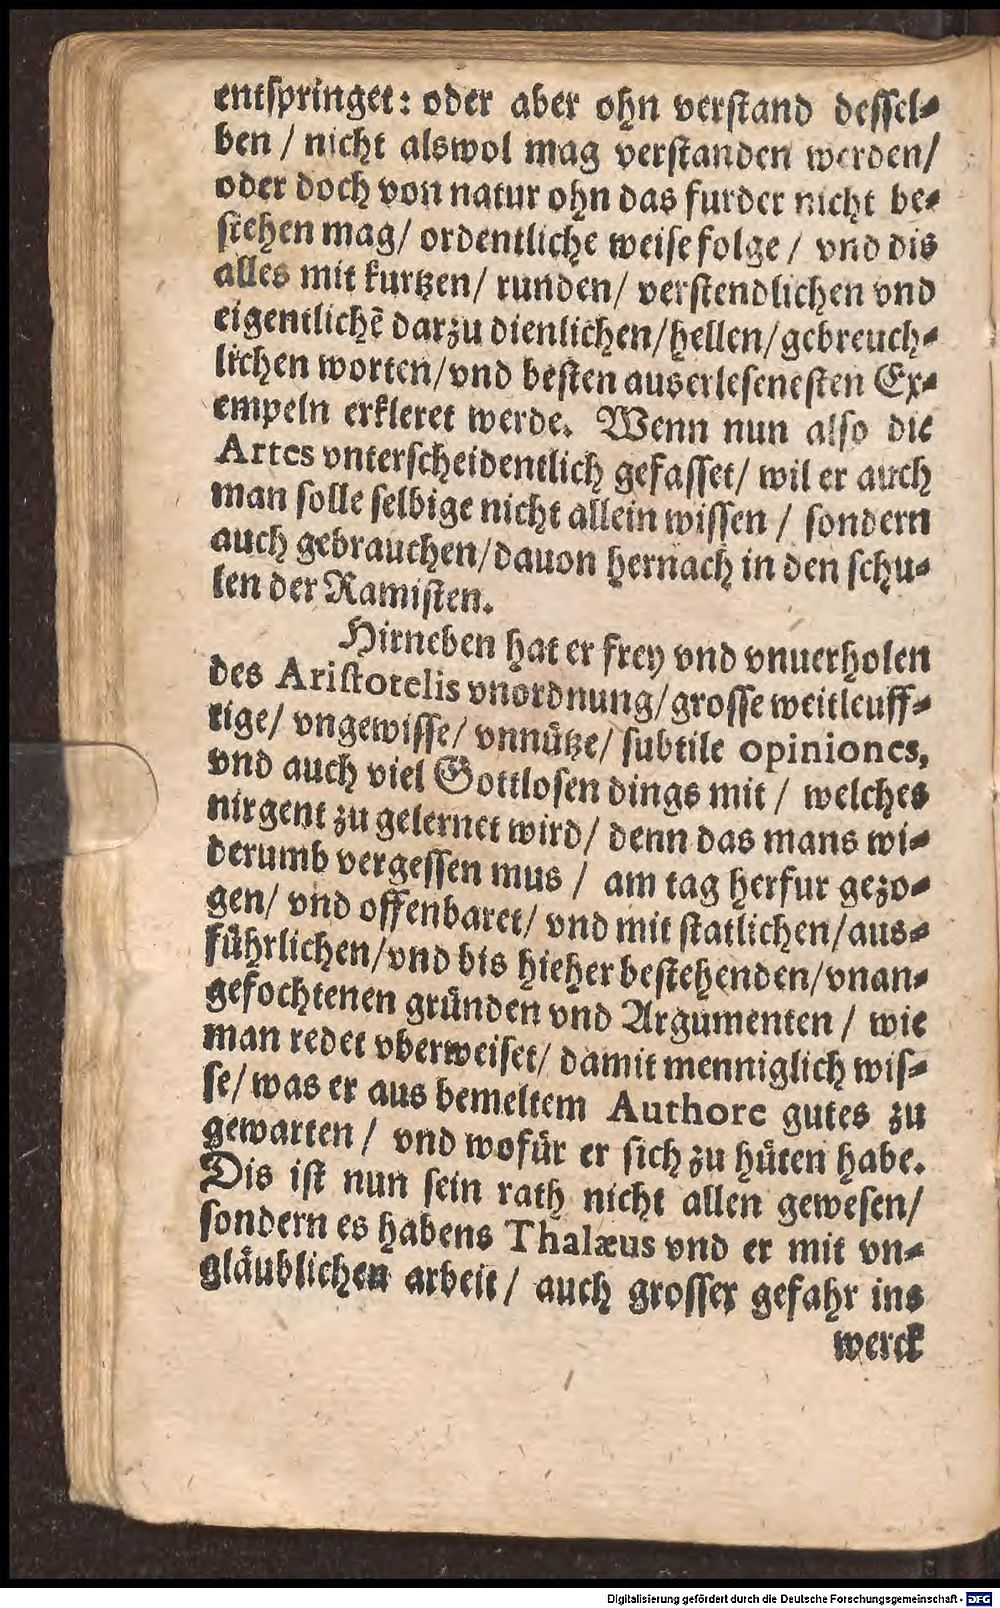 entſpringet: oder aber ohn verſtand deſſel⸗
ben / nicht alswol mag verſtanden werden/
oder doch von natur ohn das furder nicht be⸗
ſtehen mag/ ordentliche weiſe folge / vnd dis
alles mit kurtzen/ runden/ verſtendlichen vnd
eigentlichē darzu dienlichen/hellen/gebreuch⸗
lichen worten/vnd beſten auserleſeneſten Ex⸗
empeln erkleret werde. Wenn nun alſo die
Artes vnterſcheidentlich gefaſſet/ wil er auch
man ſolle ſelbige nicht allein wiſſen / ſondern
auch gebrauchen/dauon hernach in den ſchu⸗
len der Ramiſten.
Hirneben hat er frey vnd vnuerholen
des Ariſtotelis vnordnung/groſſe weitleuff⸗
tige/ vngewiſſe/ vnnütze/ ſubtile opiniones,
vnd auch viel Gottloſen dings mit / welches
nirgent zu gelernet wird/ denn das mans wi⸗
derumb vergeſſen mus / am tag herfur gezo⸗
gen/ vnd offenbaret/ vnd mit ſtatlichen/aus⸗
führlichen/vnd bis hieher beſtehenden/vnan⸗
gefochtenen gründen vnd Argumenten / wie
man redet vberweiſet/ damit menniglich wiſ⸗
ſe/ was er aus bemeltem Authore gutes zu
gewarten / vnd wofür er ſich zu hüten habe.
Dis iſt nun ſein rath nicht allen geweſen/
ſondern es habens Thalæus vnd er mit vn⸗
gläublichen arbeit/ auch groſſer gefahr ins
werck
Digitalisierung gefördert durch die Deutsche Forschungsgemeinschaft - DFG